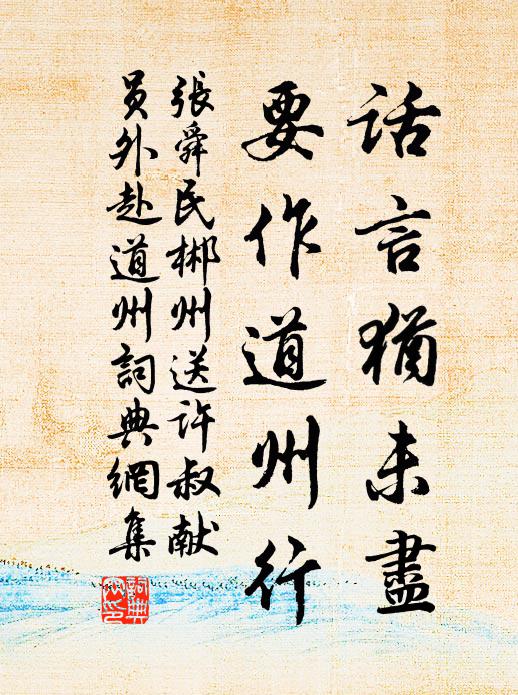 话言猶未盡
要作道州行
張舜民郴州送许叔献
员外赴道州詞典網集